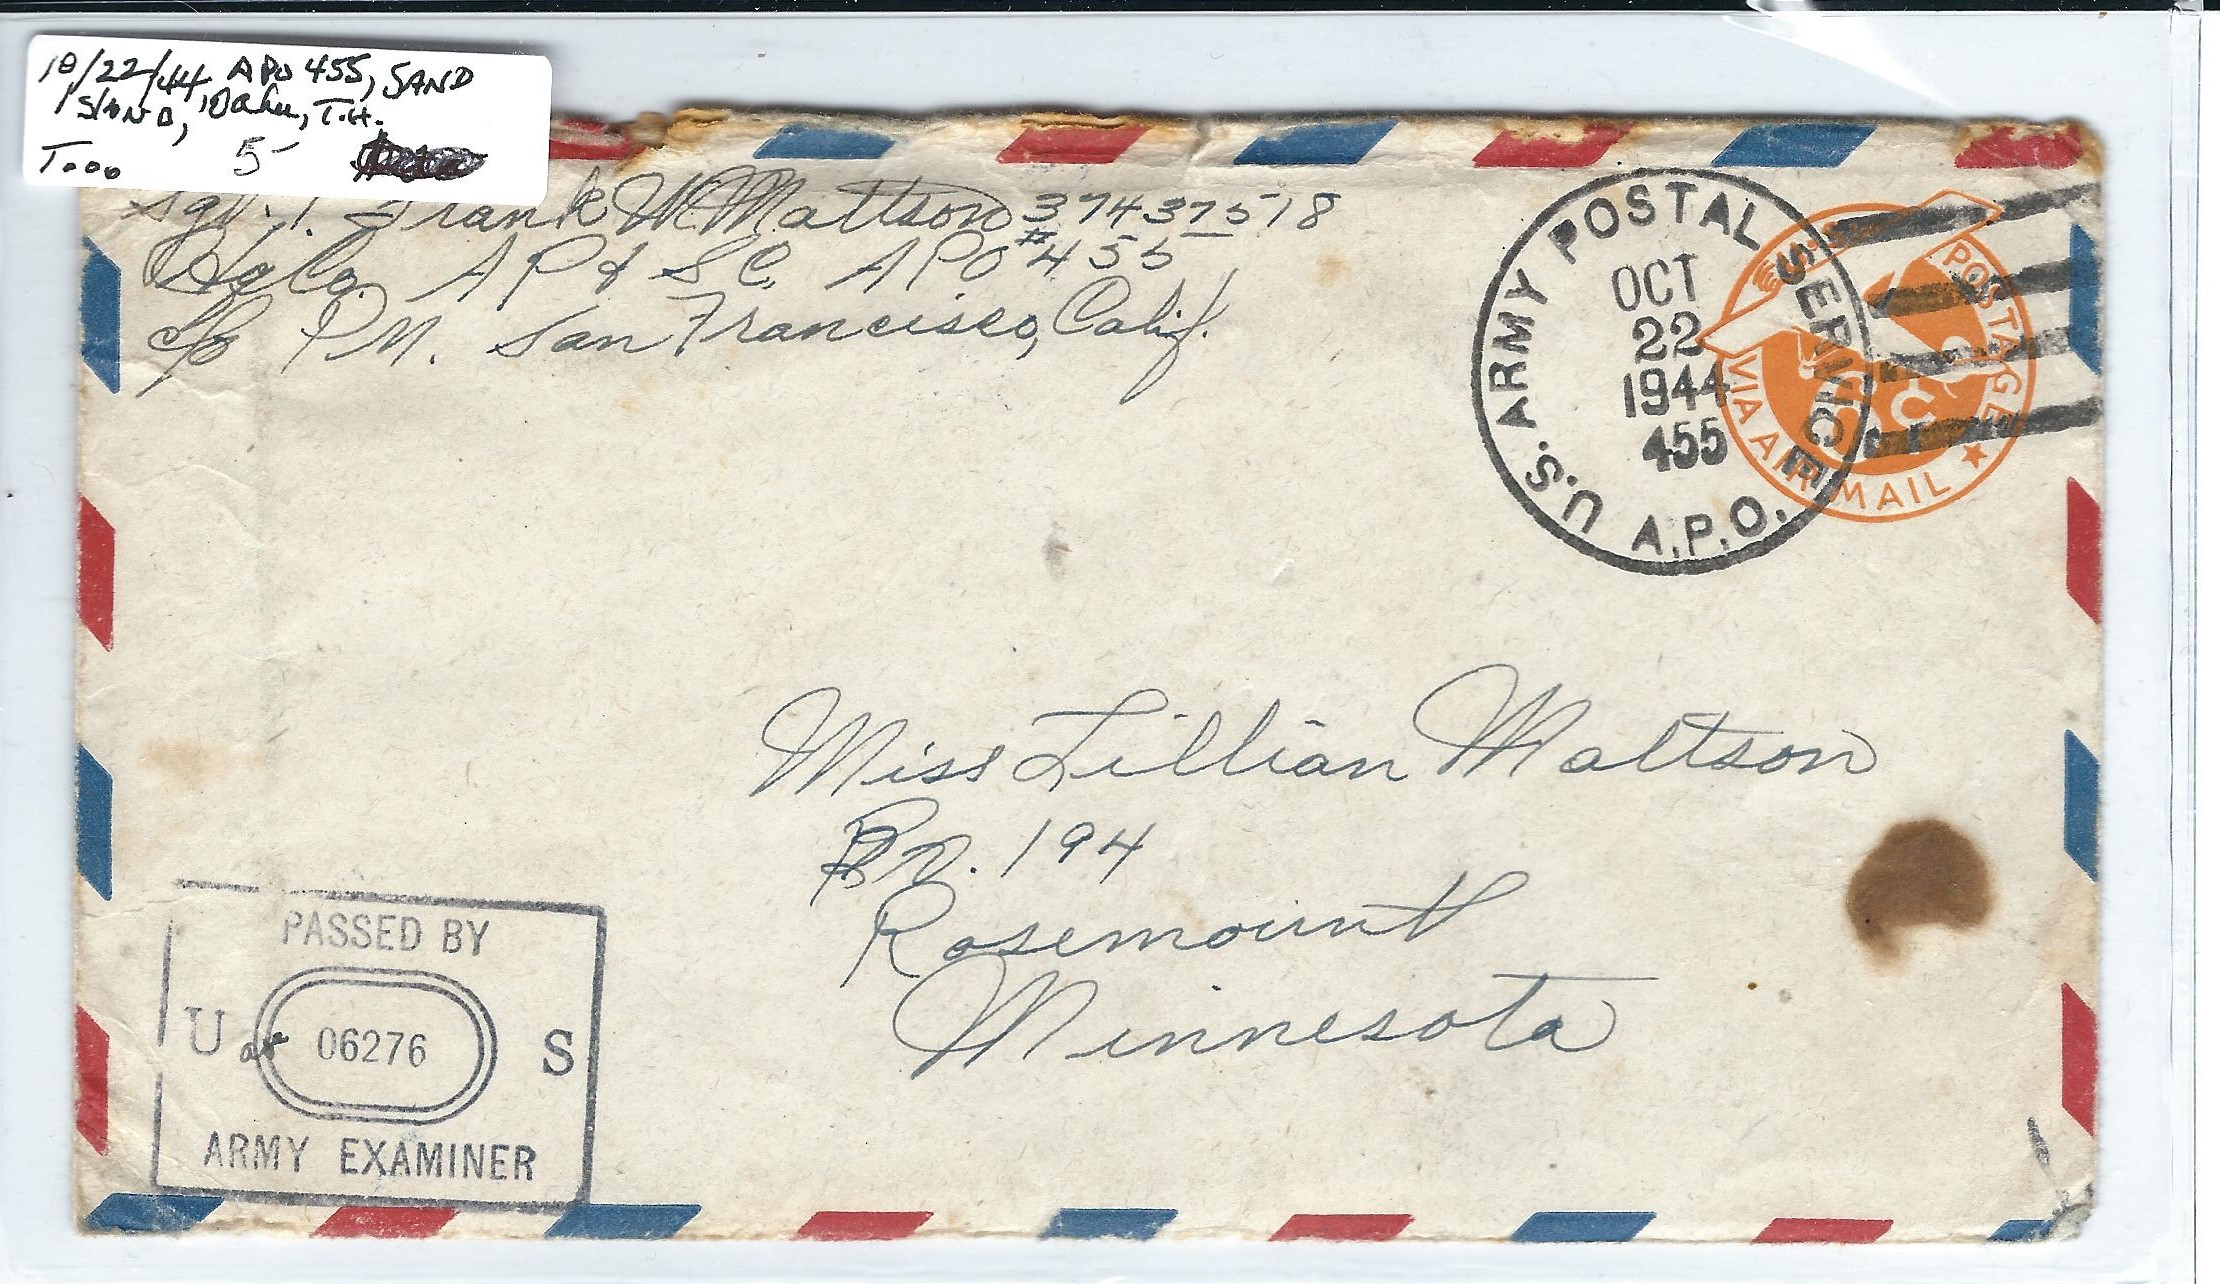 10/22/44, APO 455, SAND
ISLAND, Oahu, T.H.
5-
Frank W. Mattson 37437518
Hq Co. AP & SC. APO #455
c/o PM. San Francisco, Calif.
U.S. ARMY POSTAL SERVICE
A.P.O.
OCT
22
1944
455
POSTAGE
VIA AIR MAIL
6C
Miss Lillian Mattson
194
Rosemount
Minnesota
PASSED BY
U 06276 S
ARMY EXAMINER